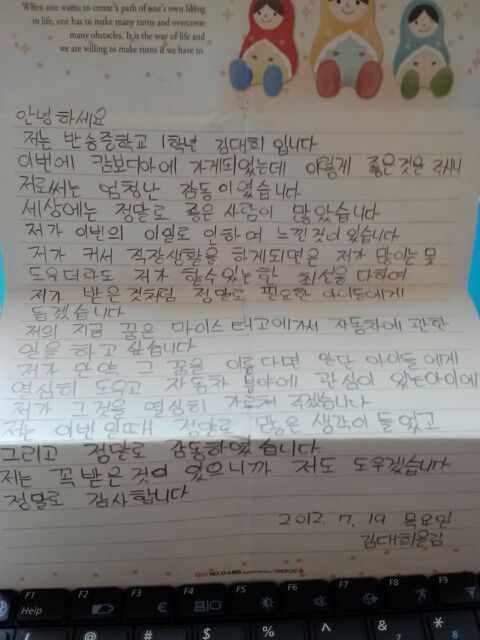 When one wants to create a path of one's own liking
in life, one has to make many turns and overcome
many obstacles. It is the way of life and
we are willing to make turns if we have to.
안녕하세요
저는 반송중학교 1학년 김대희 입니다
이번에 캄보디아에 가게되었는데 이렇게 좋은것은 주시니
저로써는 엄청난 감동이였습니다
세상에는 정말로 좋은 사람이 많았습니다
저가 이번의 이일로 인하여 느낀것이 있습니다
저가 커서 직장생활을 하게되면은 저가 많이는 못
도우더라도 저가 할수있는한 최선을 다하여
저가 받은것처럼 정말로 필요한 아이들에게
돕겠습니다
저의 지금 꿈은 마이스터고에가서 자동차에 관한
일을 하고 싶습니다
저가 만약 그 꿈을 이룬다면 일단 아이들에게
열심히 도우고 자동차 분야에 관심이 있는아이에
저가 그것을 열심히 가르쳐 주겠습니다
저는 이번 일때 정말로 많은 생각이 들었고
그리고 정말로 감동하였습니다
저는 꼭 받은것이 있으니까 저도 도우겠습니다
정말로 감사합니다
2012. 7. 19 목요일
김대희올림
F1 F2 F3 F4 F5 F6 F7 F8 F9
Help
! @ # $ % ^ & *
8